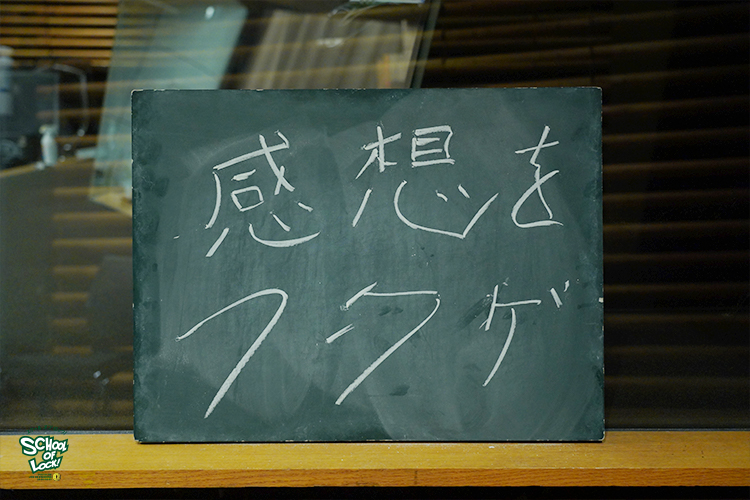 感想を
フタゲ
SCHOOL
OF
LOCK!